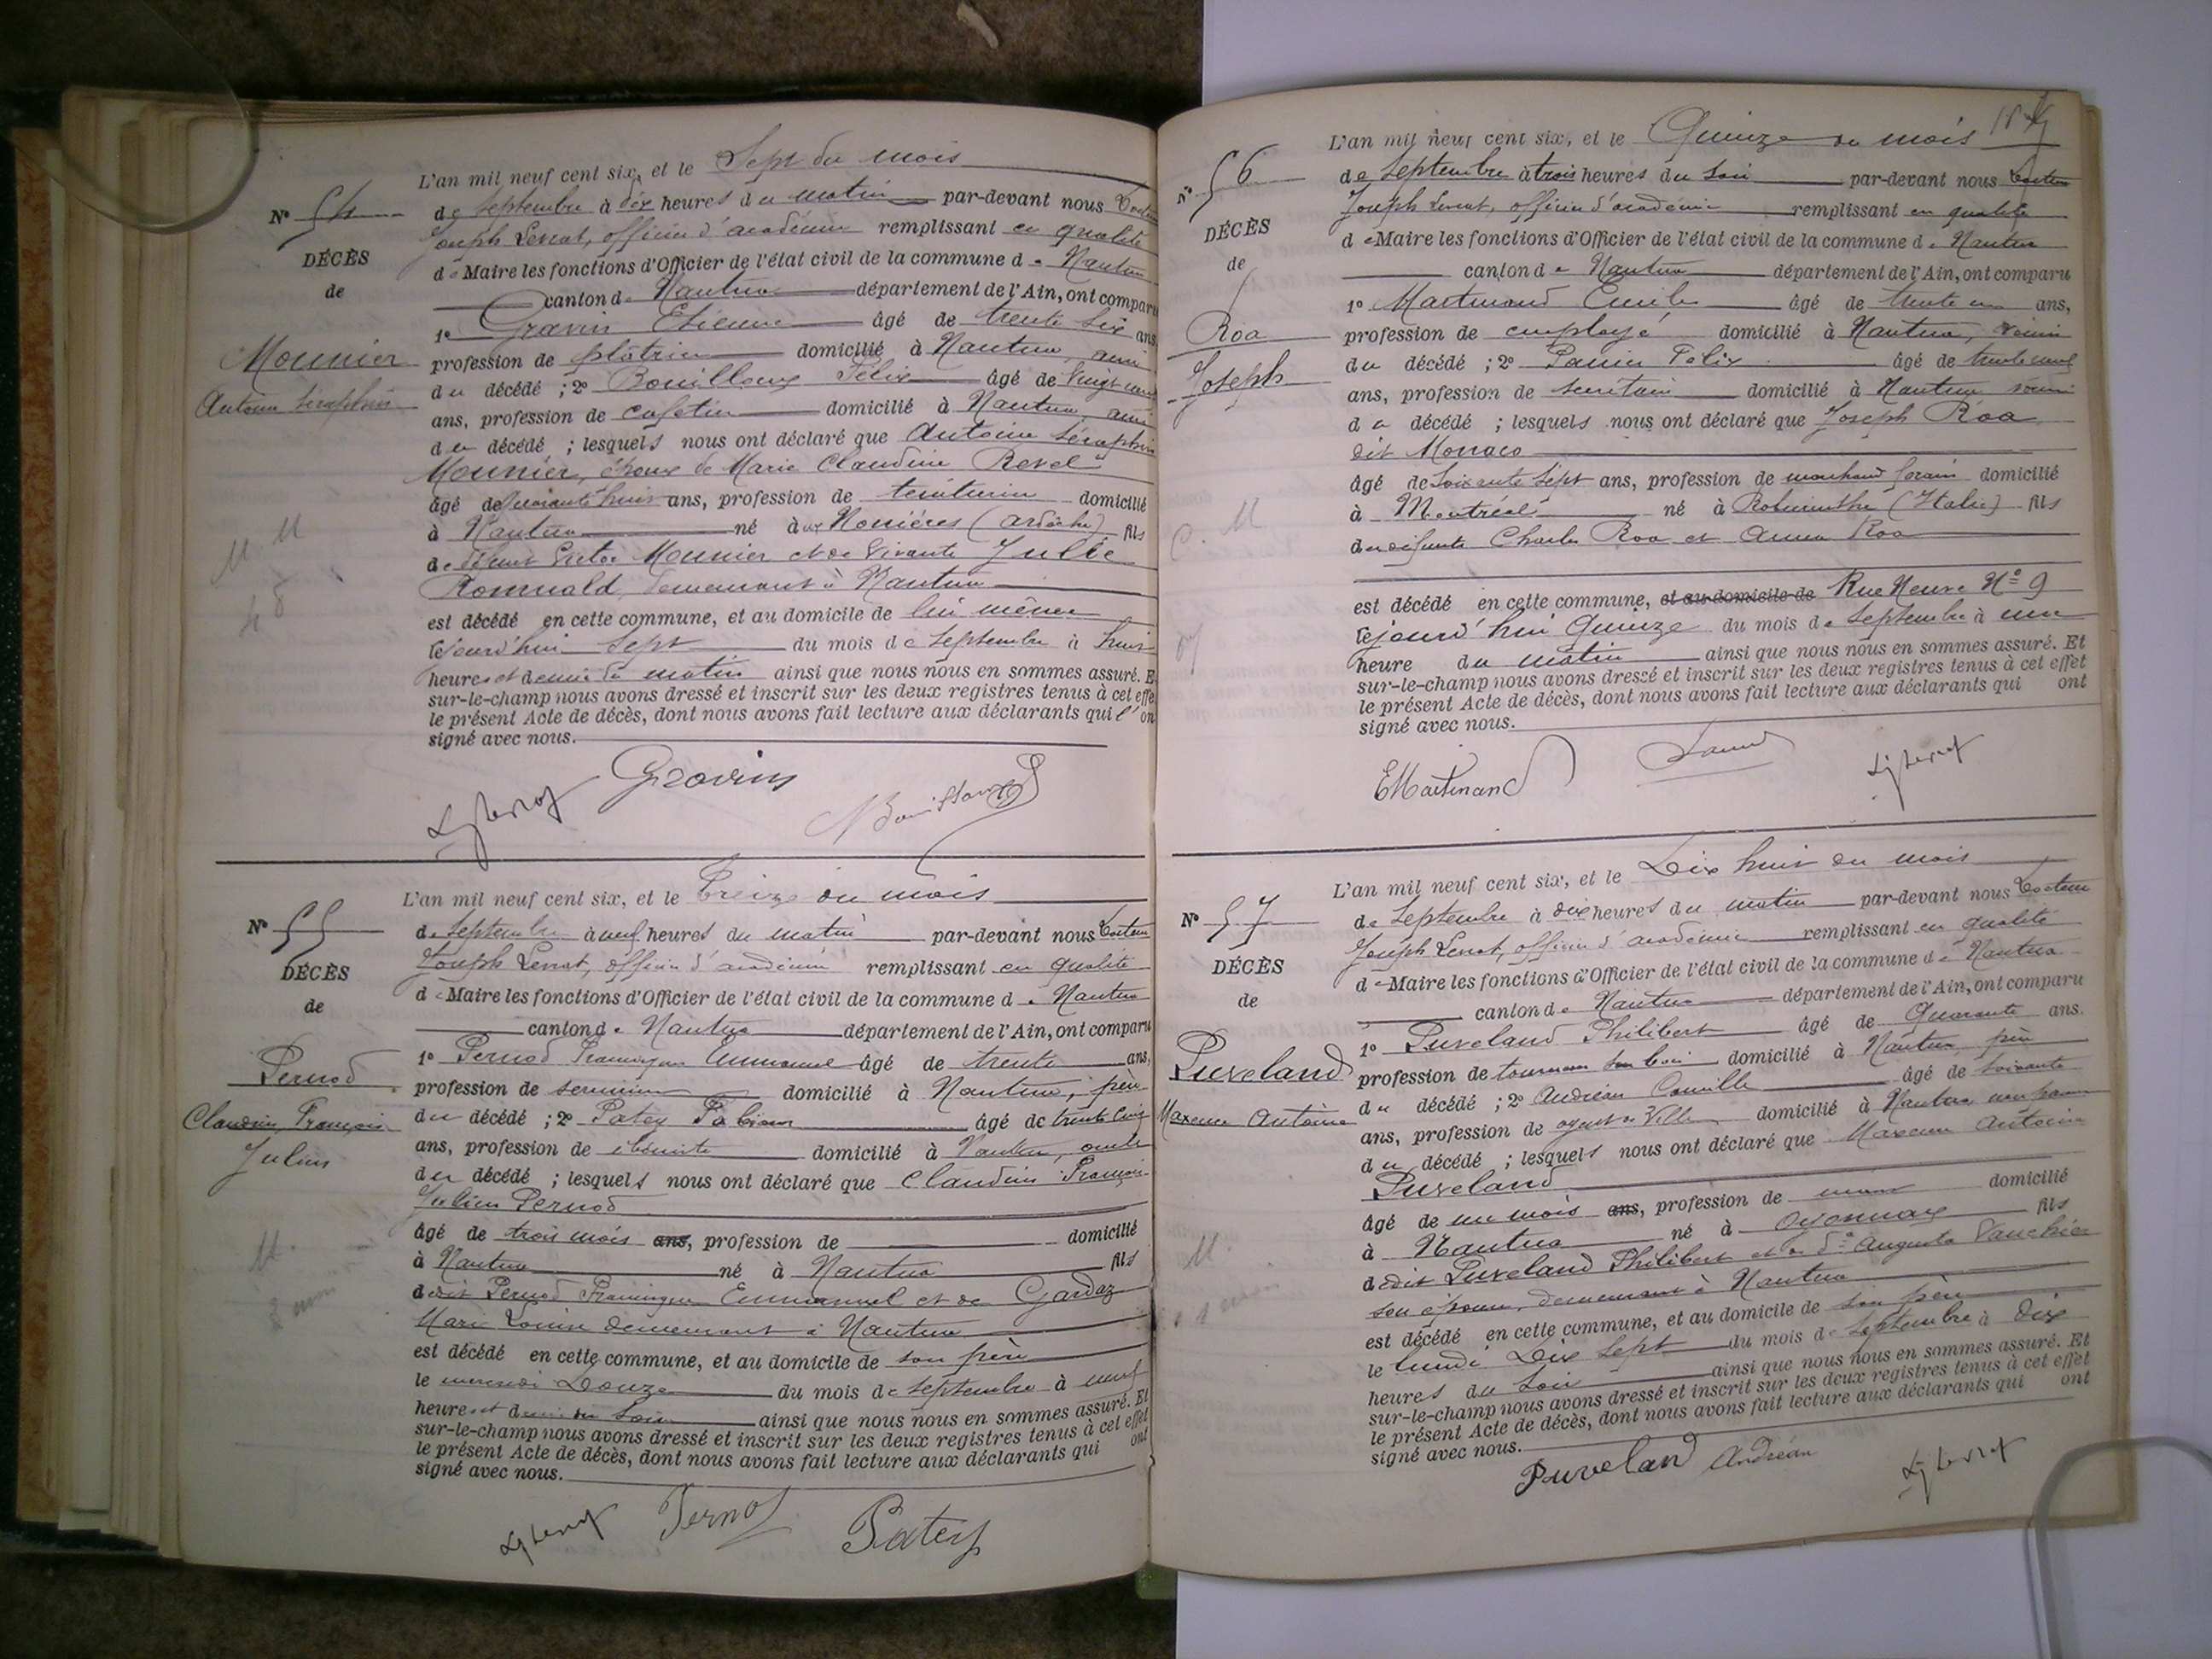 L'an mil neuf cent six, et le Sept du mois
de Septembre à dix heures du matin par-devant nous
Joseph Lenat, officier d'académie remplissant en qualité
de Maire les fonctions d'Officier de l'état civil de la commune de Nantua
canton de Nantua département de l'Ain, ont comparu
1º Gravin Etienne âgé de trente six ans
profession de plâtrier domicilié à Nantua, ami
du décédé ; 2º Bouilloux Félix âgé de vingt
ans, profession de cafetier domicilié à Nantua, ami
du décédé ; lesquels nous ont déclaré que Antoine Séraphin
Mounier, époux de Marie Claudine Revel
âgé de quarante huit ans, profession de teinturier domicilié
à Nantua né aux Nonières (Ardèche) fils
de défunt Victor Mounier et de vivante Julie
Romuald, demeurant à Nantua
est décédé en cette commune, et au domicile de lui même
cejourd'hui Sept du mois de Septembre à huit
heures et demie du matin ainsi que nous nous en sommes assuré. E
sur-le-champ nous avons dressé et inscrit sur les deux registres tenus à cet effe
le présent Acte de décès, dont nous avons fait lecture aux déclarants qui l'on
signé avec nous.
Nº 54
DÉCÈS
de
Mounier
Antoine Séraphin
Gravin
L'an mil neuf cent six, et le Treize du mois
de Septembre à neuf heures du matin par-devant nous Docteur
Joseph Lenat, officier d'académie remplissant en qualité
de Maire les fonctions d'Officier de l'état civil de la commune de Nantua
canton de Nantua département de l'Ain, ont comparu
1º Pernod Emmanuel âgé de trente ans,
profession de serrurier domicilié à Nantua, père
du décédé ; 2º Patey Fabien âgé de trente cinq
ans, profession de ébéniste domicilié à Nantua, oncle
du décédé ; lesquels nous ont déclaré que Claudin François
Julien Pernod
âgé de trois mois ans, profession de domicilié
à Nantua né à Nantua fils
dudit Pernod Emmanuel et de Gardaz
Marie Louise demeurant à Nantua
est décédé en cette commune, et au domicile de son père
le mercredi Douze du mois de Septembre à neuf
heures et demie du soir ainsi que nous nous en sommes assuré. Et
sur-le-champ nous avons dressé et inscrit sur les deux registres tenus à cet effet
le présent Acte de décès, dont nous avons fait lecture aux déclarants qui ont
signé avec nous.
Nº 55
DÉCÈS
de
Pernod
Claudin François
Julien
Pernod
Patey
L'an mil neuf cent six, et le Quinze du mois
de Septembre à trois heures du soir par-devant nous Docteur
Joseph Lenat, officier d'académie remplissant en qualité
de Maire les fonctions d'Officier de l'état civil de la commune de Nantua
canton de Nantua département de l'Ain, ont comparu
1º Martinand Emile âgé de trente un ans,
profession de employé domicilié à Nantua, voisin
du décédé ; 2º Félix âgé de trente neuf
ans, profession de secrétaire domicilié à Nantua voisin
du décédé ; lesquels nous ont déclaré que Joseph Roa
dit Monaco
âgé de soixante sept ans, profession de marchand forain domicilié
à Montréal né à (Italie) fils
de défunts Charles Roa et Anna Roa
est décédé en cette commune, et au domicile de Rue Neuve Nº 9
cejourd'hui Quinze du mois de Septembre à une
heure du matin ainsi que nous nous en sommes assuré. Et
sur-le-champ nous avons dressé et inscrit sur les deux registres tenus à cet effet
le présent Acte de décès, dont nous avons fait lecture aux déclarants qui ont
signé avec nous.
Nº 56
DÉCÈS
de
Roa
Joseph
EMartinand
L'an mil neuf cent six, et le Dix huit du mois
de Septembre à dix heures du matin par-devant nous Docteur
Joseph Lenat, officier d'académie remplissant en qualité
de Maire les fonctions d'Officier de l'état civil de la commune de Nantua
canton de Nantua département de l'Ain, ont comparu
1º Puveland Philibert âgé de Quarante ans.
profession de tourneur sur bois domicilié à Nantua, père
du décédé ; 2º Andréan Camille âgé de soixante
ans, profession de agent de Ville domicilié à Nantua non parent
du décédé ; lesquels nous ont déclaré que Maxence Antoine
Puveland
âgé de un mois ans, profession de domicilié
à Nantua né à Oyonnax fils
dudit Puveland Philibert et de De Augusta Vauchier
son épouse, demeurant à Nantua
est décédé en cette commune, et au domicile de son père
le lundi Dix Sept du mois de Septembre à Dix
heures du soir ainsi que nous nous en sommes assuré. Et
sur-le-champ nous avons dressé et inscrit sur les deux registres tenus à cet effet
le présent Acte de décès, dont nous avons fait lecture aux déclarants qui ont
signé avec nous.
Nº 57
DÉCÈS
de
Puveland
Maxence Antoine
Puveland
Andréan